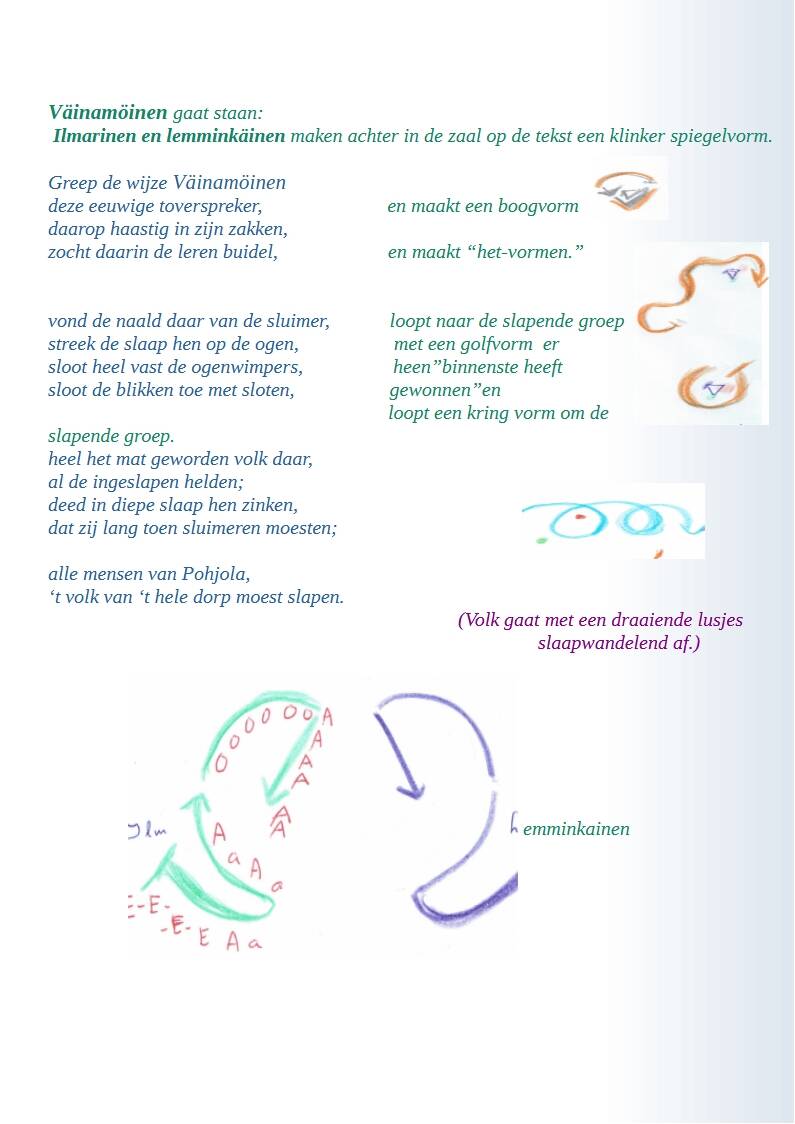 Väinamöinen gaat staan:
Ilmarinen en lemminkäinen maken achter in de zaal op de tekst een klinker spiegelvorm.
Greep de wijze Väinamöinen
deze eeuwige toverspreker, en maakt een boogvorm
daarop haastig in zijn zakken,
zocht daarin de leren buidel, en maakt “het-vormen.”
vond de naald daar van de sluimer, loopt naar de slapende groep
streek de slaap hen op de ogen, met een golfvorm er
sloot heel vast de ogenwimpers, heen”binnenste heeft
sloot de blikken toe met sloten, gewonnen”en
loopt een kring vorm om de
slapende groep.
heel het mat geworden volk daar,
al de ingeslapen helden;
deed in diepe slaap hen zinken,
dat zij lang toen sluimeren moesten;
alle mensen van Pohjola,
‘t volk van ‘t hele dorp moest slapen.
(Volk gaat met een draaiende lusjes
slaapwandelend af.)
O O O O O O A
A
A
A
A
A
Ilm A emminkainen
a A a
E-E-
-E- E A a